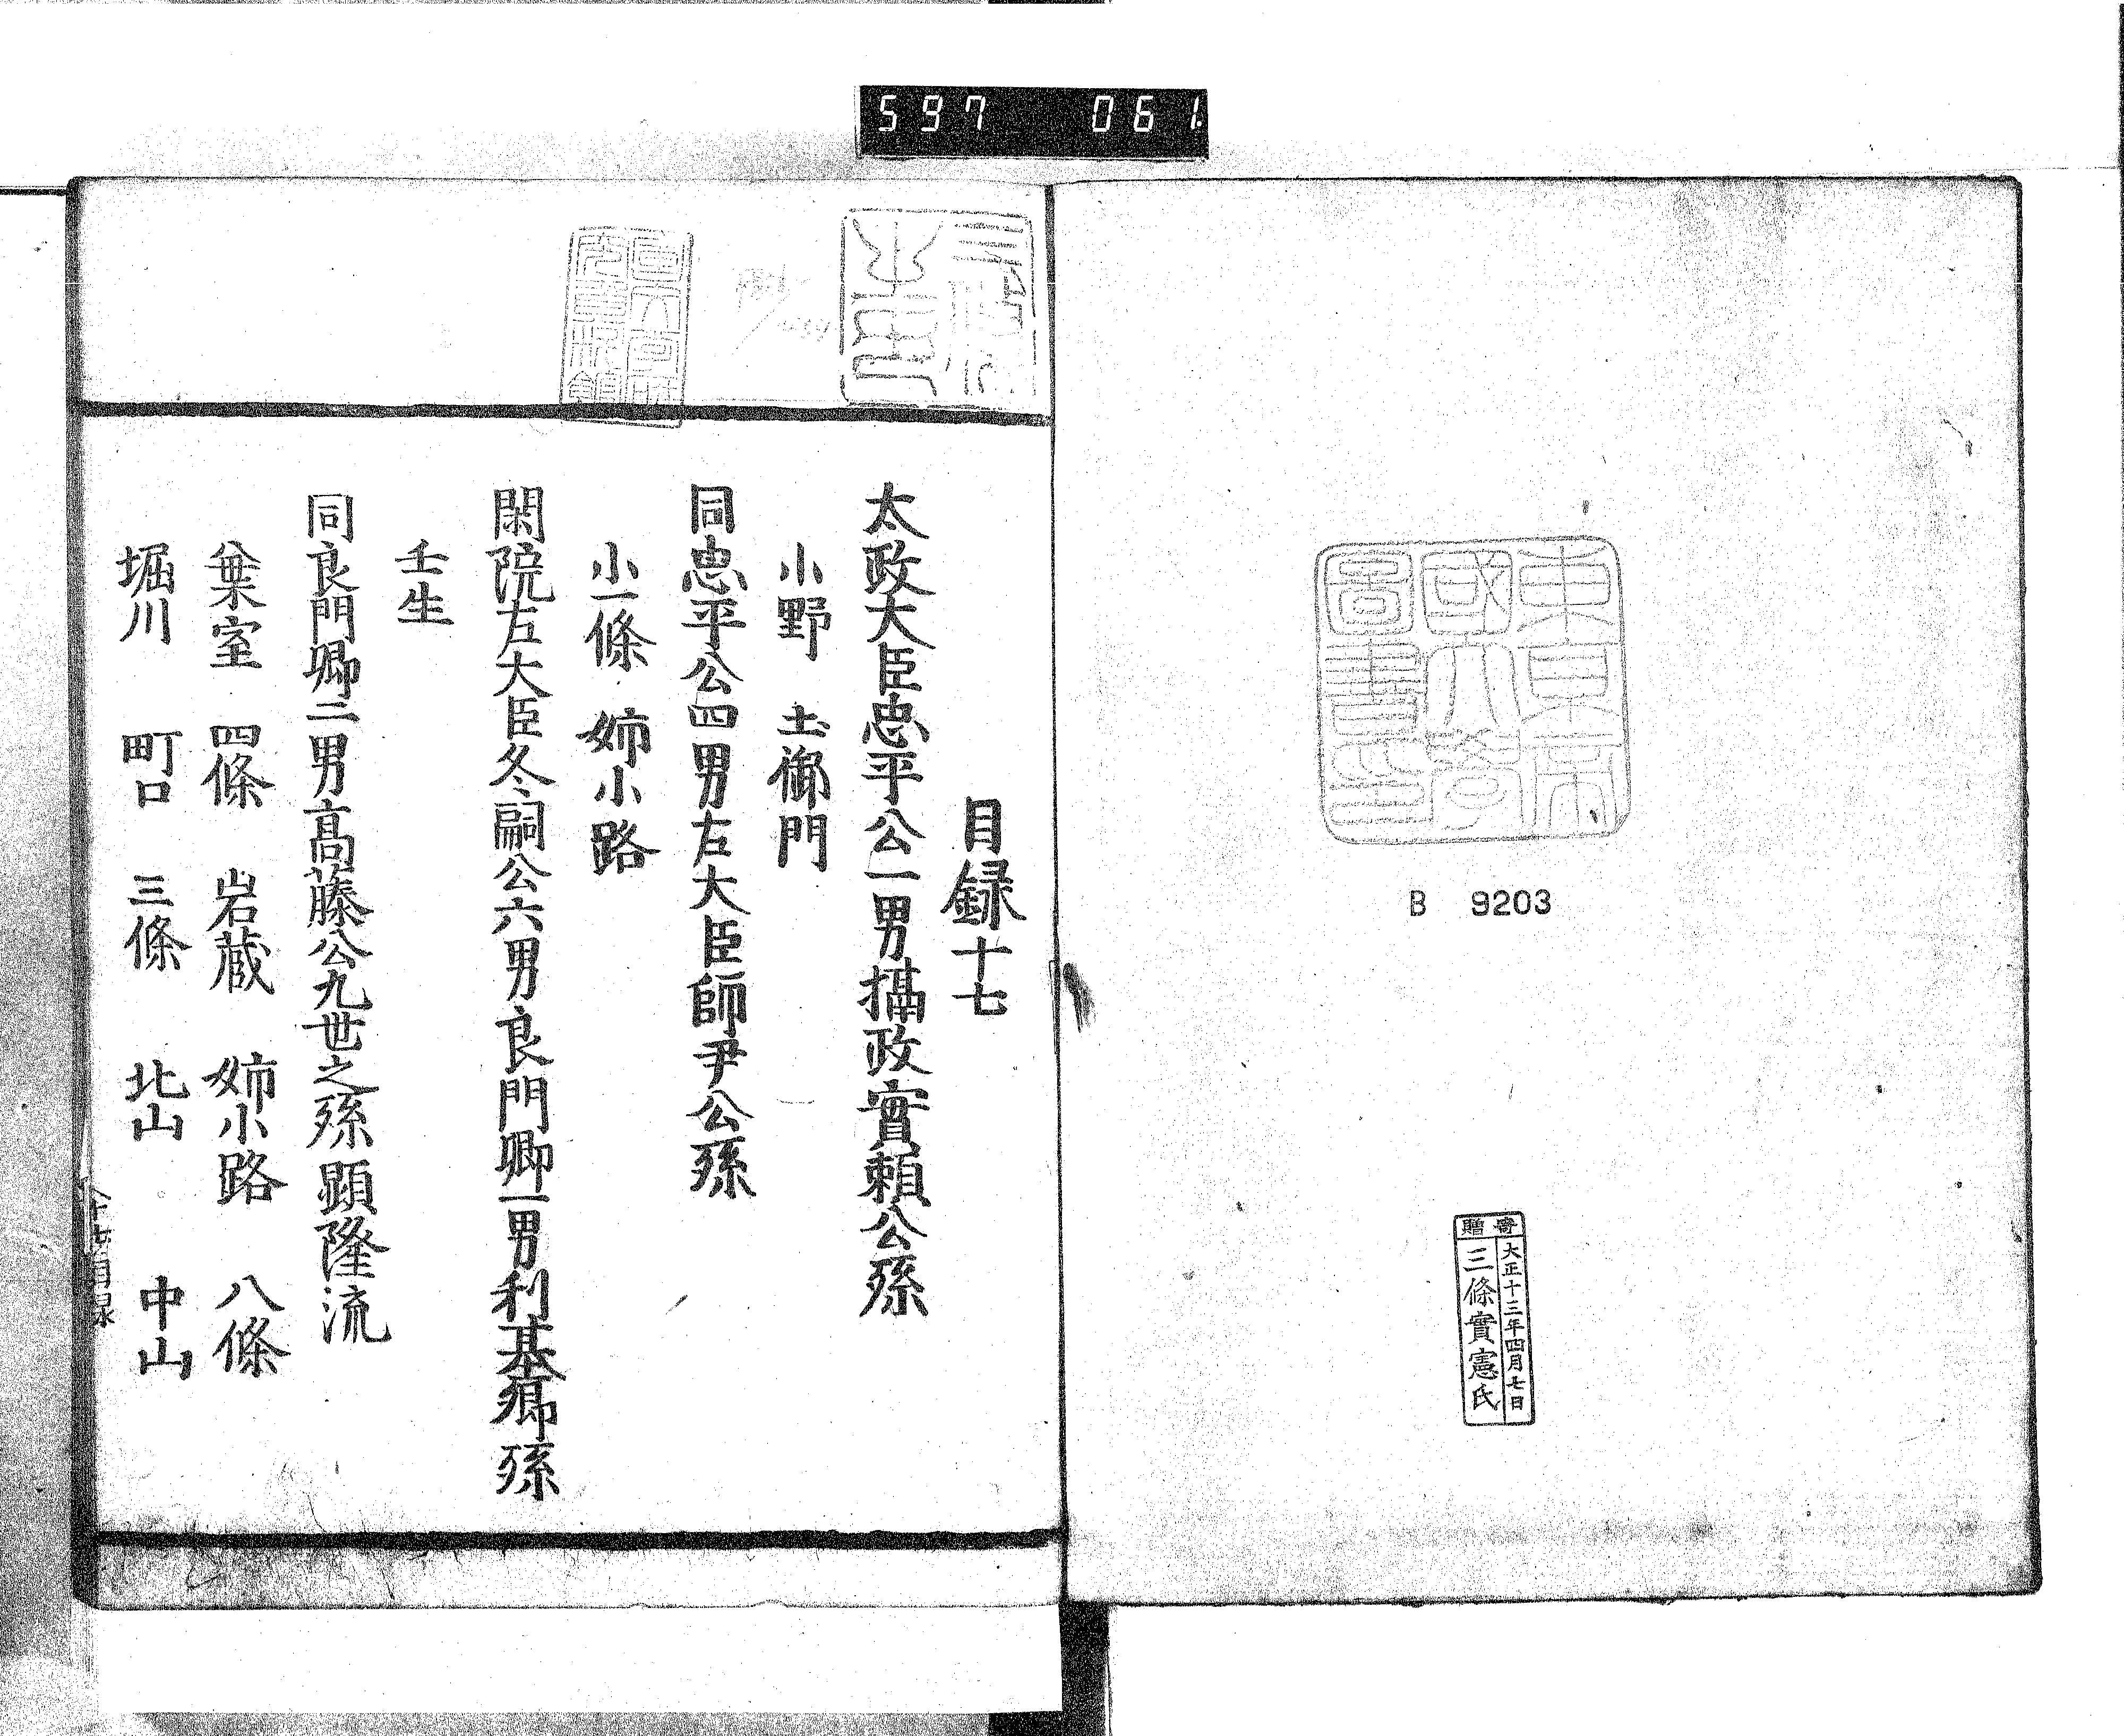 597 061
東京帝
國大學
圖書印
B 9203
寄贈
大正十三年四月七日
三條實憲氏
目録十七
太政大臣忠平公一男攝政實頼公孫
小野 土御門
同忠平公四男左大臣師尹公孫
小一條 姉小路
閑院左大臣冬嗣公六男良門卿一男利基卿孫
壬生
同良門卿二男髙藤公九世之孫顕隆流
葉室 四條 岩蔵 姉小路 八條
堀川 町口 三條 北山 中山